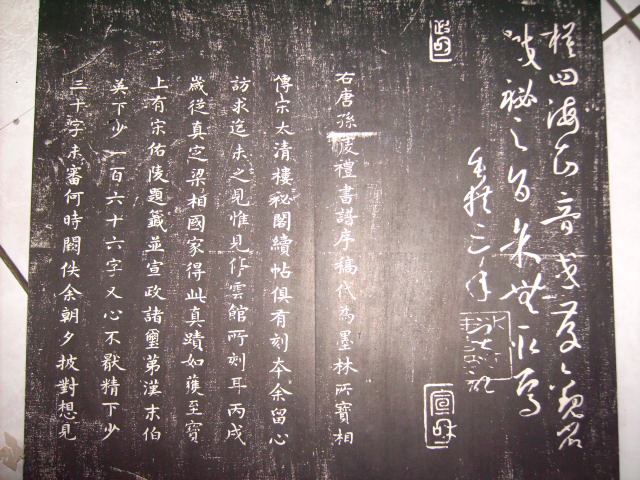 摸四海知音或存觀省
緘秘之旨余無取焉
垂拱三年寫記
政和
宣和
右唐孫虔禮書譜序稿代為墨林所寶相
傳宋太清樓秘閣續帖俱有刻本余留心
訪求迄未之見惟見停雲館所刻耳丙戌
歲從真定梁相國家得此真蹟如獲至寶
上有宋佑陵題籤並宣政諸璽第漢末伯
英下少一百六十六字又心不猒精下少
三十字未審何時闕佚余朝夕披對想見